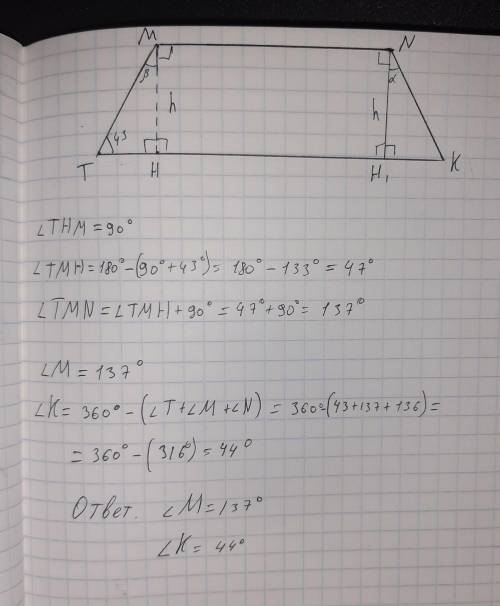 M N
β α
h h
43
T H H₁ K
∠THM = 90°
∠TMH = 180° - (90° + 43°) = 180° - 133° = 47°
∠TMN = ∠TMH + 90° = 47° + 90° = 137°
∠M = 137°
∠K = 360° - (∠T + ∠M + ∠N) = 360° - (43 + 137 + 136) =
= 360° - (316°) = 44°
Ответ. ∠M = 137°
∠K = 44°